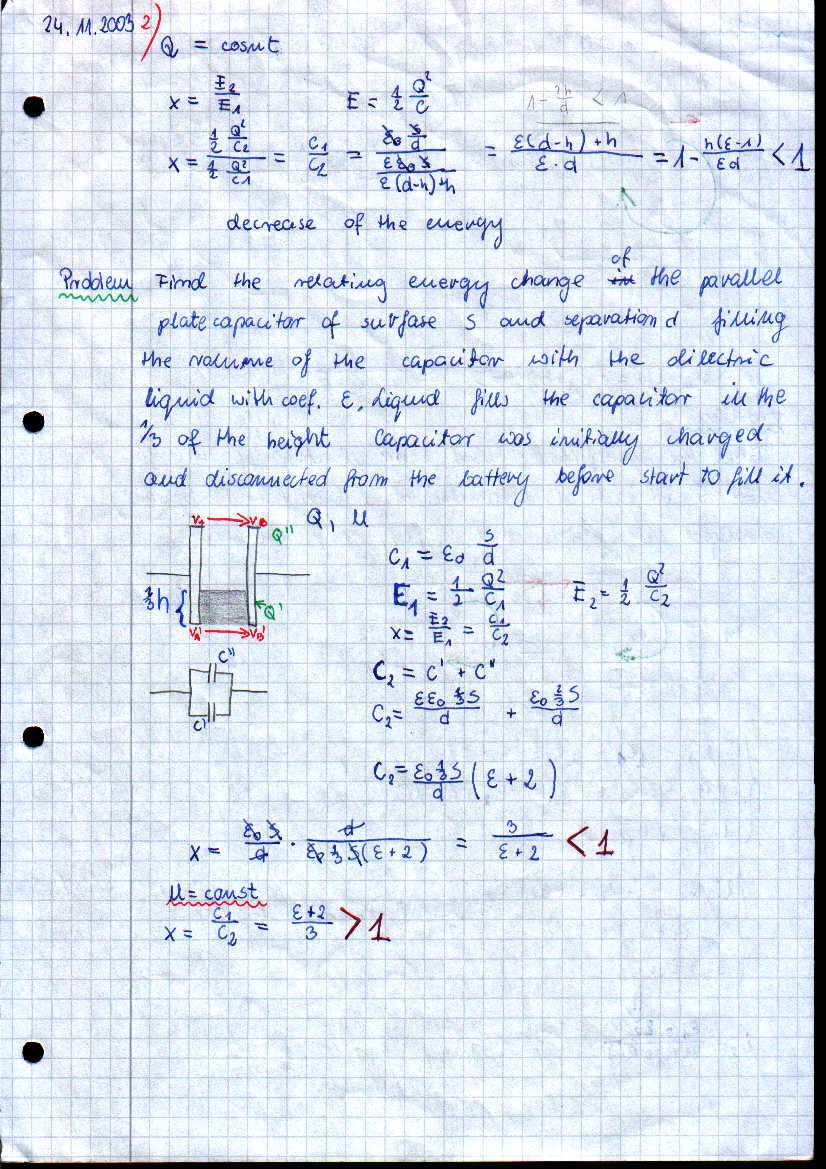 24.11.2003 2)
Q = const
x = E₂/E₁ E = 1/2 Q²/C
1 - 2h/d < 1
x = (1/2 Q²/C₂)/(1/2 Q²/C₁) = C₁/C₂ = (ε₀ S/d)/(εε₀S/(ε(d-h)+h)) = (ε(d-h)+h)/(ε·d) = 1 - h(ε-1)/(εd) < 1
decrease of the energy
Problem Find the relating energy change in of the parallel
plate capacitor of surfase S and separation d filling
the volume of the capacitor with the dilectric
liquid with coef. ε. Liquid fills the capacitor in the
1/3 of the height Capacitor was initially charged
and disconnected from the battery before start to fill it.
V_A V_B Q, U
Q''
C₁ = ε₀ S/d
1/3 h Q' E₁ = 1/2 Q²/C₁ E₂ = 1/2 Q²/C₂
V_A' V_B' x = E₂/E₁ = C₁/C₂
C'' C₂ = C' + C''
C' C₂ = (εε₀ 1/3 S)/d + (ε₀ 2/3 S)/d
C₂ = (ε₀ 1/3 S)/d (ε + 2)
x = (ε₀ S)/d · d/(ε₀ 1/3 S(ε+2)) = 3/(ε+2) < 1
U = const
x = C₁/C₂ = (ε+2)/3 > 1